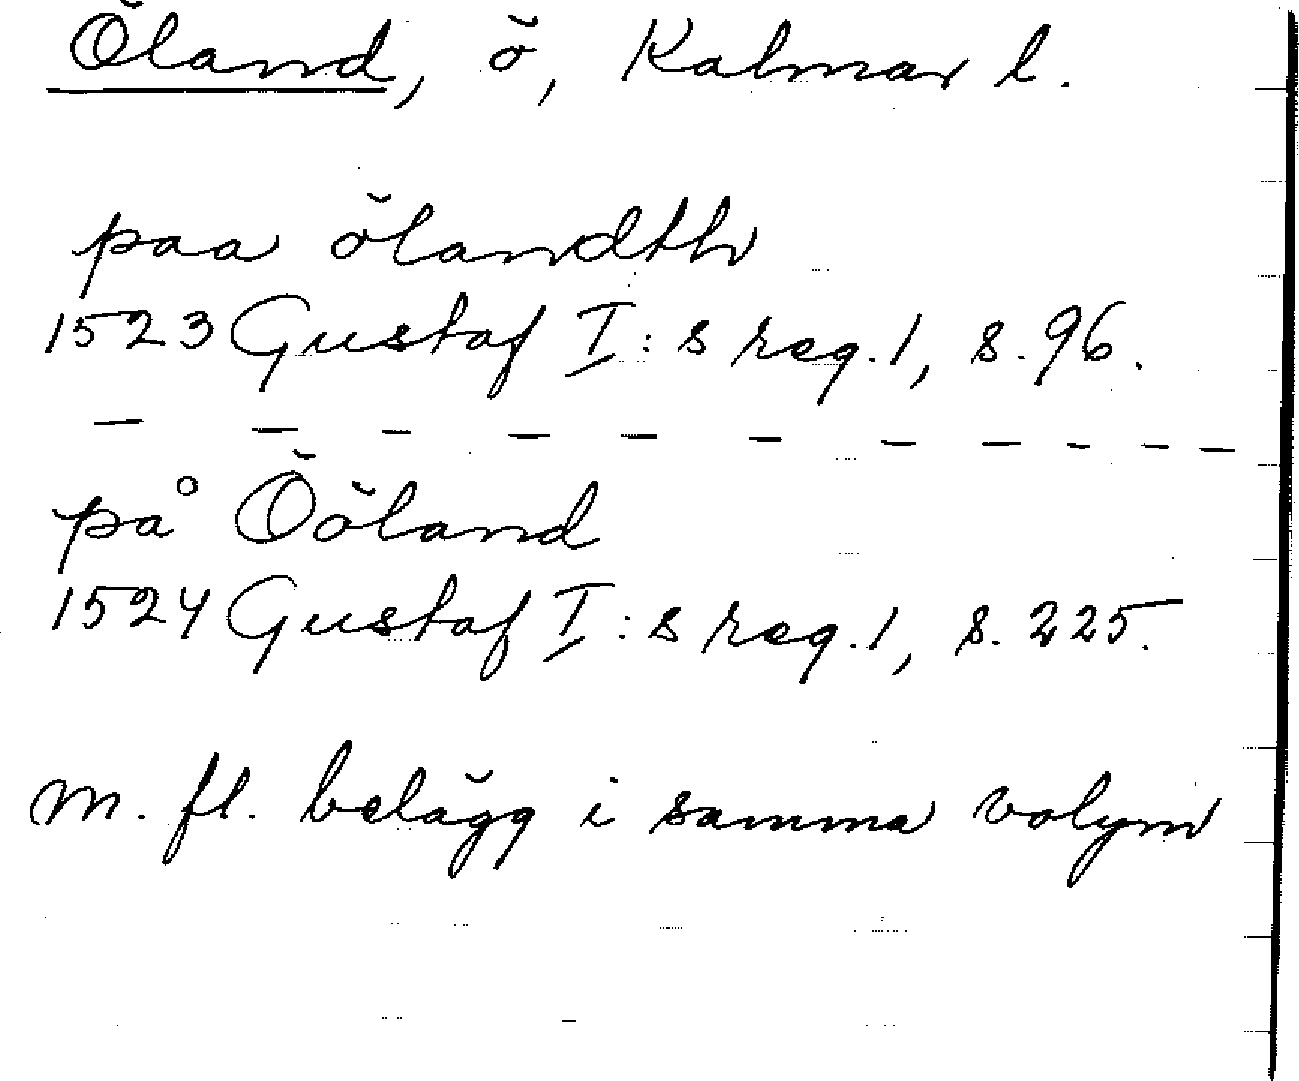 Öland, ö, Kalmar l.
paa ölandth
1523 Gustaf I:s reg. 1, s. 96.
— — — — — — — — — —
på Ööland
1524 Gustaf I:s reg. 1, s. 225.
m. fl. belägg i samma volym